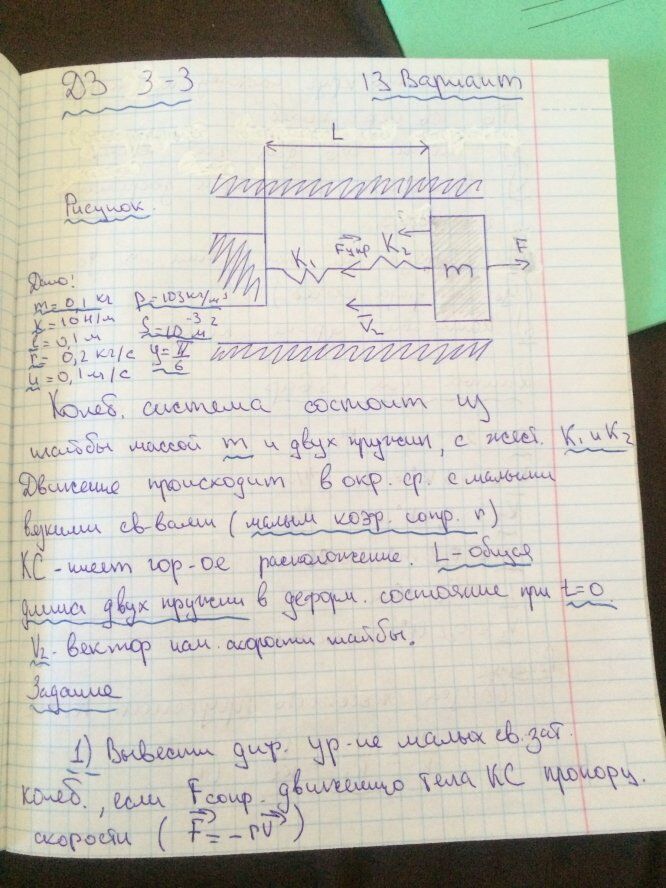 ДЗ 3-3 13 Вариант
L
Рисунок.
K₁ Fупр K₂ m F
V₂
Дано:
m=0,1 кг ρ=103кг/м³
K=10н/м S=10⁻³м²
ℓ=0,1м φ=π/6
r=0,2 кг/с
u=0,1м/с
Колеб. система состоит из
шайбы массой m и двух пружин, с жест. K₁ и K₂
Движение происходит в окр. ср. с малыми
вязкими св-вами (малым коэф. сопр. r)
КС-имеет гор-ое расположение. L-общая
длина двух пружин в деформ. состояние при t=0.
V₂-вектор нач. скорости шайбы.
Задание
1) Вывести диф. ур-ие малых св. зат.
колеб., если Fсопр. движению тела КС пропорц.
скорости (F=-rV)